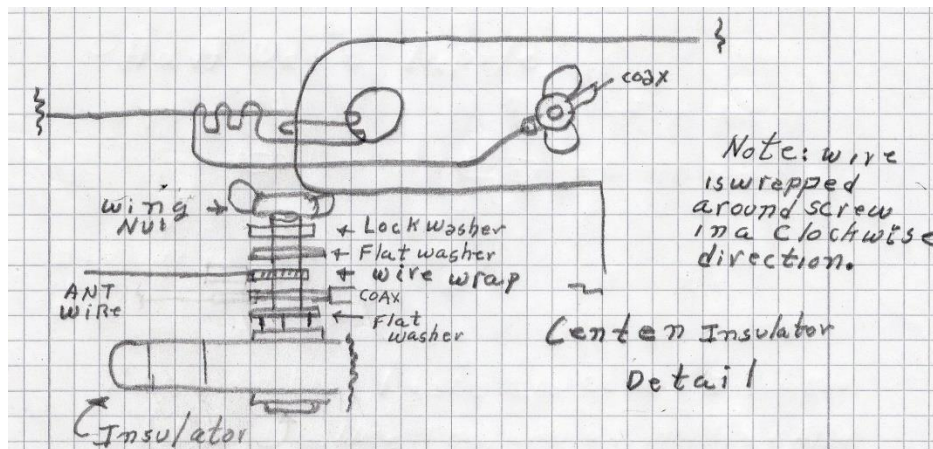 coax
Note: wire
is wrapped
around screw
in a clockwise
direction.
wing
Nut
Lock washer
Flat washer
wire wrap
ANT
WIRE
COAX
Flat
washer
Centen Insulator
Detail
Insulator